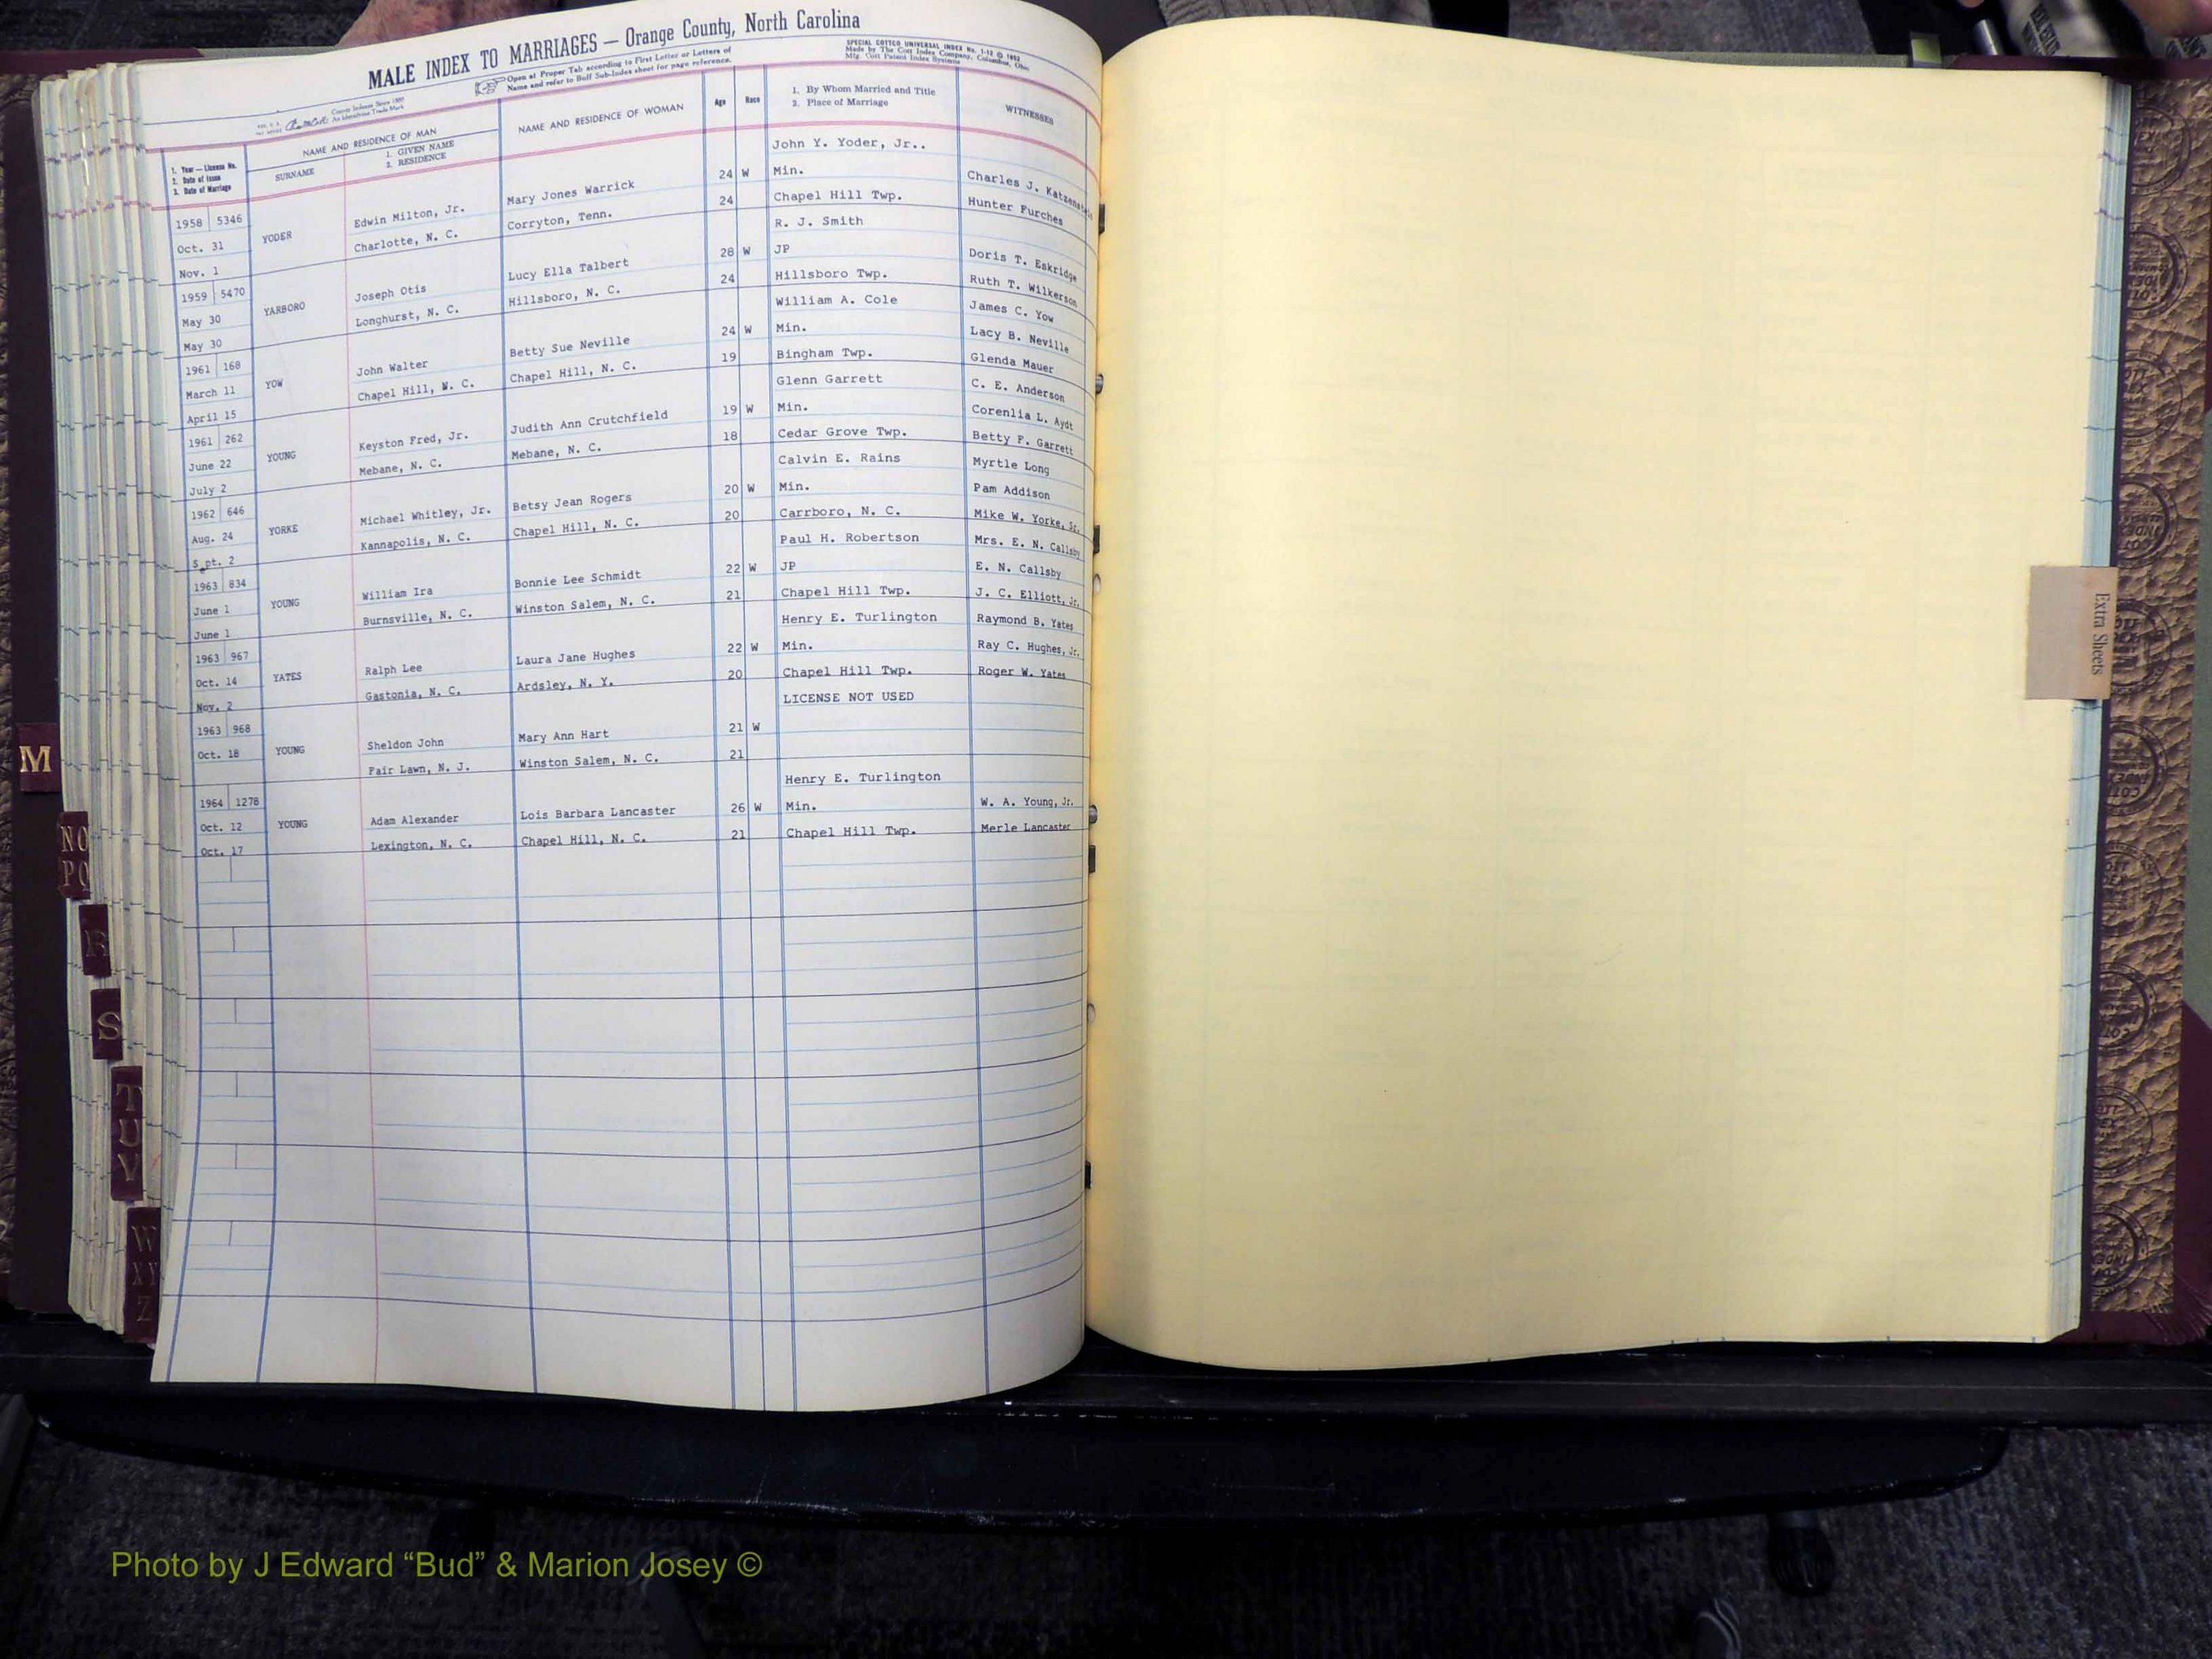 MALE INDEX TO MARRIAGES — Orange County, North Carolina
Open at Proper Tab according to First Letter or Letters of
Name and refer to Buff Sub-Index sheet for page reference.
SPECIAL COTTCO UNIVERSAL INDEX No. 1-12 © 1952
Made by The Cott Index Company, Columbus, Ohio
Mfg. Cott Patent Index Systems
County Indexes Since 1888
An Identifying Trade Mark
1. Year — License No.
2. Date of Issue
3. Date of Marriage
NAME AND RESIDENCE OF MAN
SURNAME
1. GIVEN NAME
2. RESIDENCE
NAME AND RESIDENCE OF WOMAN
Age
Race
1. By Whom Married and Title
2. Place of Marriage
WITNESSES
John Y. Yoder, Jr..
1958 5346 Edwin Milton, Jr. Mary Jones Warrick 24 W Min. Charles J. Katzenstein
Oct. 31 YODER Charlotte, N. C. Corryton, Tenn. 24 Chapel Hill Twp. Hunter Furches
Nov. 1
R. J. Smith
1959 5470 Joseph Otis Lucy Ella Talbert 28 W JP Doris T. Eskridge
May 30 YARBORO Longhurst, N. C. Hillsboro, N. C. 24 Hillsboro Twp. Ruth T. Wilkerson
May 30
William A. Cole James C. Yow
1961 168 John Walter Betty Sue Neville 24 W Min. Lacy B. Neville
March 11 YOW Chapel Hill, N. C. Chapel Hill, N. C. 19 Bingham Twp. Glenda Mauer
April 15
Glenn Garrett C. E. Anderson
1961 262 Keyston Fred, Jr. Judith Ann Crutchfield 19 W Min. Corenlia L. Aydt
June 22 YOUNG Mebane, N. C. Mebane, N. C. 18 Cedar Grove Twp. Betty F. Garrett
July 2
Calvin E. Rains Myrtle Long
1962 646 Michael Whitley, Jr. Betsy Jean Rogers 20 W Min. Pam Addison
Aug. 24 YORKE Kannapolis, N. C. Chapel Hill, N. C. 20 Carrboro, N. C. Mike W. Yorke, Sr.
Sept. 2
Paul H. Robertson Mrs. E. N. Callsby
1963 834 William Ira Bonnie Lee Schmidt 22 W JP E. N. Callsby
June 1 YOUNG Burnsville, N. C. Winston Salem, N. C. 21 Chapel Hill Twp. J. C. Elliott, Jr.
June 1
Henry E. Turlington Raymond B. Yates
1963 967 Ralph Lee Laura Jane Hughes 22 W Min. Ray C. Hughes, Jr.
Oct. 14 YATES Gastonia, N. C. Ardsley, N. Y. 20 Chapel Hill Twp. Roger W. Yates
Nov. 2
LICENSE NOT USED
1963 968 Sheldon John Mary Ann Hart 21 W
Oct. 18 YOUNG Fair Lawn, N. J. Winston Salem, N. C. 21
Henry E. Turlington
1964 1278 Adam Alexander Lois Barbara Lancaster 26 W Min. W. A. Young, Jr.
Oct. 12 YOUNG Lexington, N. C. Chapel Hill, N. C. 21 Chapel Hill Twp. Merle Lancaster
Oct. 17
M
NO
PQ
R
S
T
U
V
W
XY
Z
Extra Sheets
Photo by J Edward “Bud” & Marion Josey ©